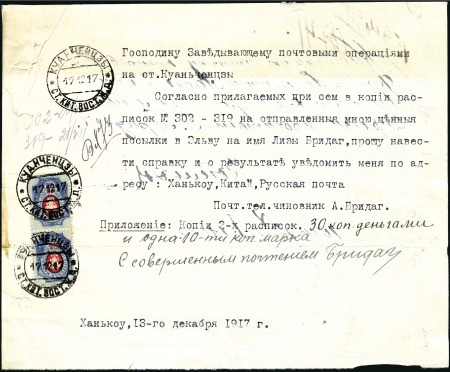 Господину Завѣдывающему почтовыми операціями
на ст.Куаньченцзы
Согласно прилагаемых при сем в копіи рас-
писок № 302 - 319 на отправленныя мною цѣнныя
посылки в Эльву на имя Лизы Бридаг, прошу навес-
ти справку и о результатѣ увѣдомить меня по ад-
ресу : Ханькоу, Китай, Русская почта
Почт.тел.чиновник А.Бридаг.
Приложеніе: Копіи 2-х расписок. 30 коп. деньгами
и одна 10-ти коп. марка
С совершенным почтением Бридаг
Ханькоу, 13-го декабря 1917 г.
КУАНЧЕНЦЗЫ
17 12 17
СТ. КИТ. ВОСТ. Ж.Д.
КУАНЧЕНЦЗЫ
17 12 17
СТ. КИТ. ВОСТ. Ж.Д.
17 12 17
СТ. КИТ. ВОСТ. Ж.Д.